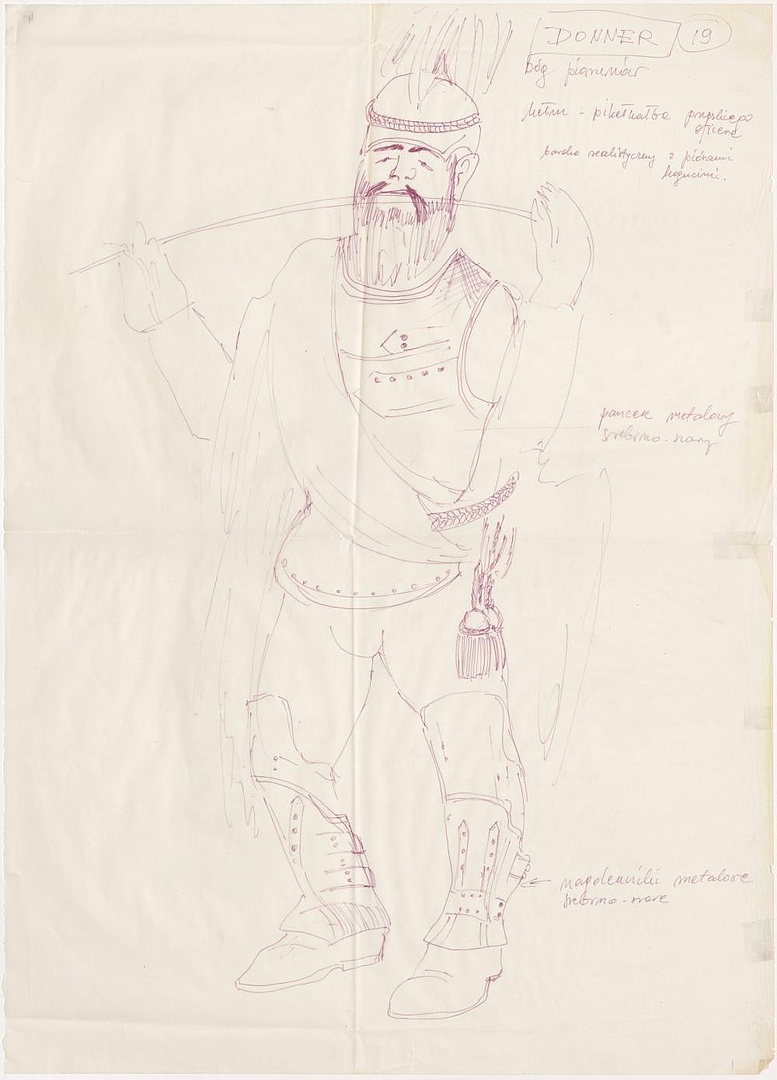 DONNER 19
bóg piorunów
hełm - pikelhalba pruskiego
oficera
bardzo realistyczny z piórami
kogucimi.
pancerz metalowy
srebrno-szary
nagolenniki metalowe
srebrno-szare